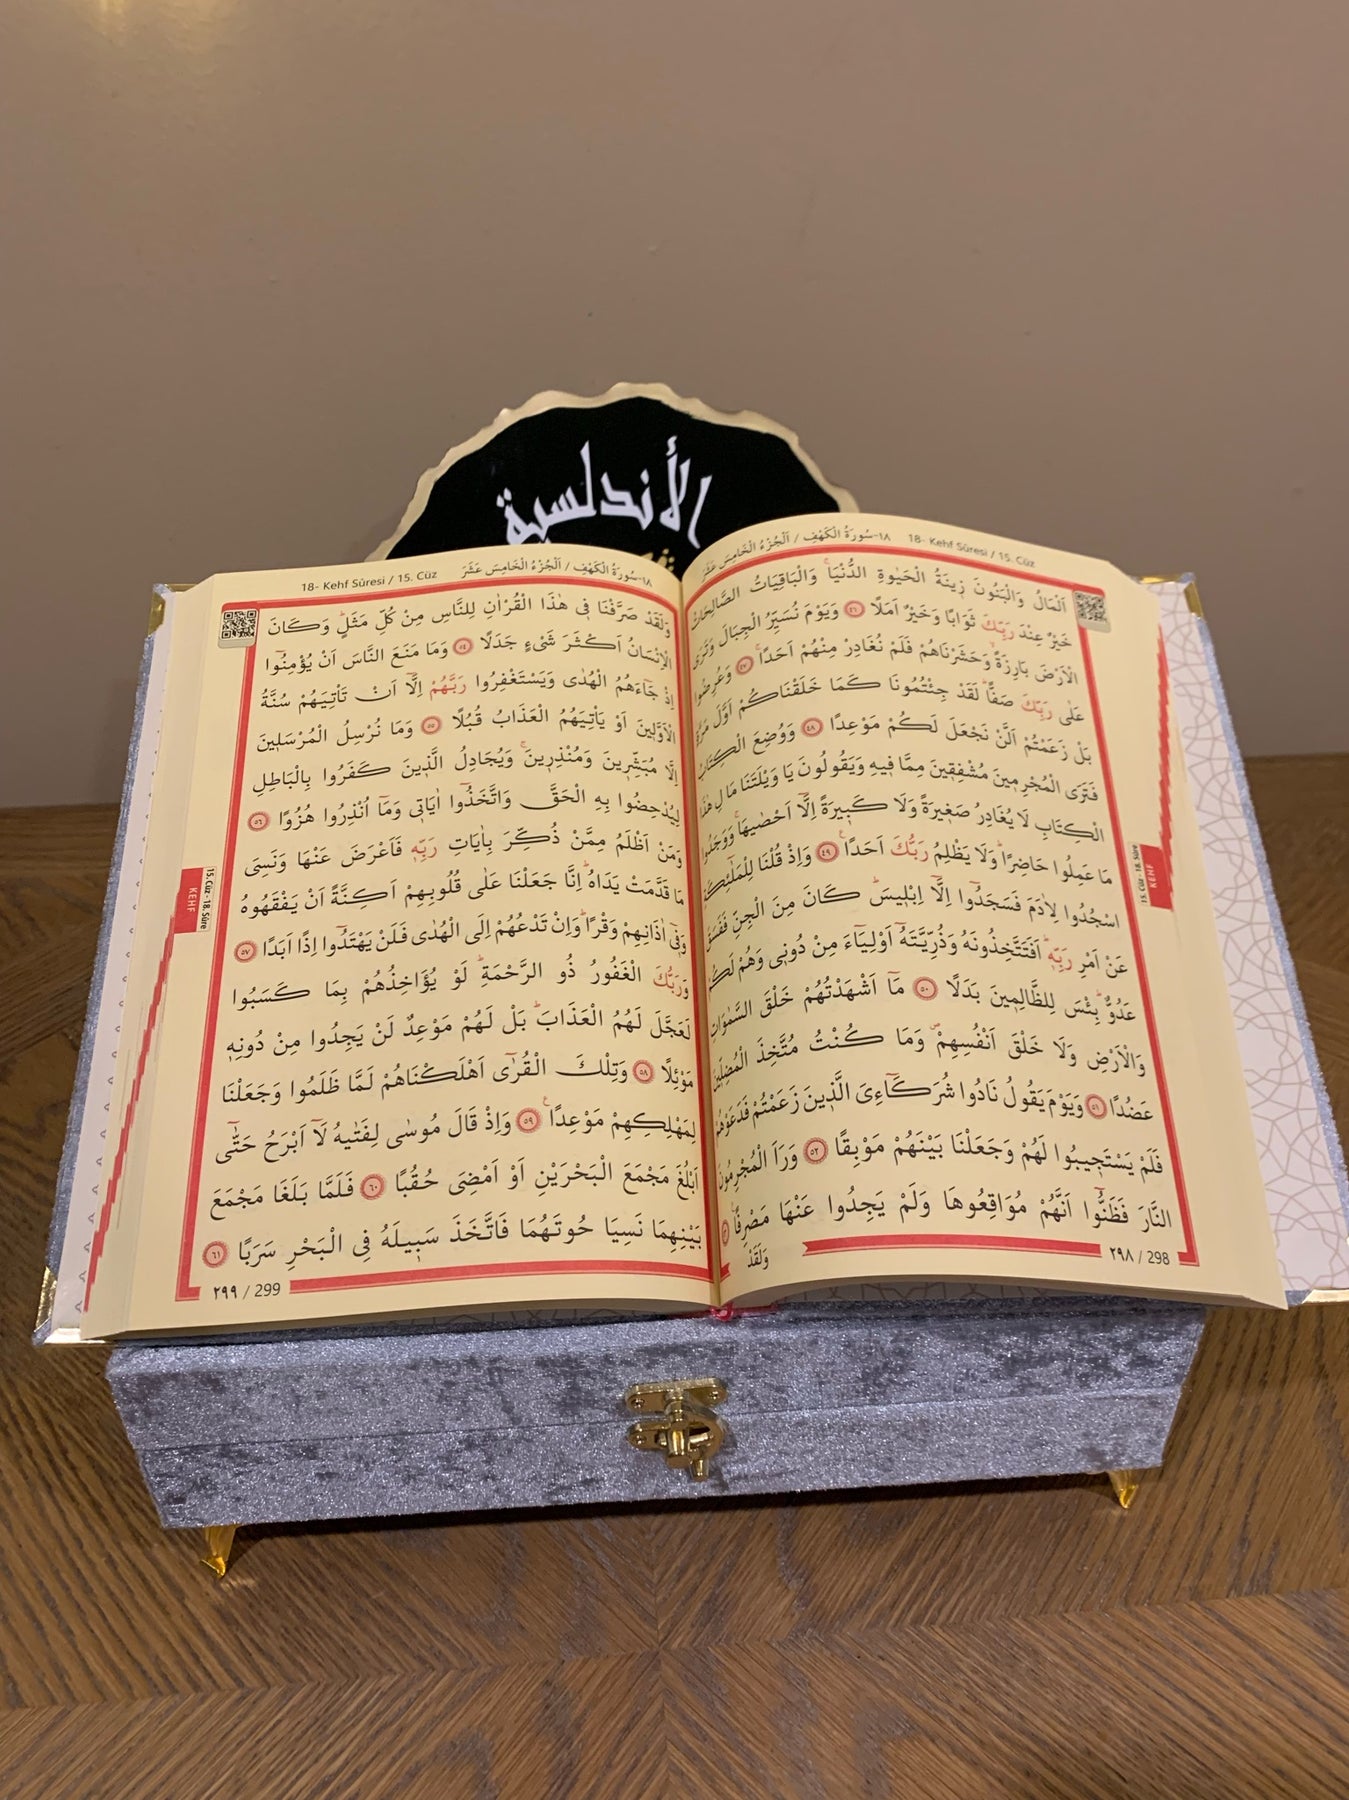 الأندلسية
١٨-سُورَةُ الْكَهْفِ / اَلْجُزْءُ الْخَامِسَ عَشَرَ 18- Kehf Sûresi / 15. Cüz
اَلْمَالُ وَالْبَنُونَ زِينَةُ الْحَيٰوةِ الدُّنْيَاۚ وَالْبَاقِيَاتُ الصَّالِحَاتُ
خَيْرٌ عِنْدَ رَبِّكَ ثَوَابًا وَخَيْرٌ اَمَلًا ٤٦ وَيَوْمَ نُسَيِّرُ الْجِبَالَ وَتَرَى
الْاَرْضَ بَارِزَةًۙ وَحَشَرْنَاهُمْ فَلَمْ نُغَادِرْ مِنْهُمْ اَحَدًاۚ ٤٧ وَعُرِضُوا
عَلٰى رَبِّكَ صَفًّاۜ لَقَدْ جِئْتُمُونَا كَمَا خَلَقْنَاكُمْ اَوَّلَ مَرَّةٍ
بَلْ زَعَمْتُمْ اَلَّنْ نَجْعَلَ لَكُمْ مَوْعِدًا ٤٨ وَوُضِعَ الْكِتَابُ
فَتَرَى الْمُجْرِمِينَ مُشْفِقِينَ مِمَّا فِيهِ وَيَقُولُونَ يَا وَيْلَتَنَا مَا لِ هٰذَا
الْكِتَابِ لَا يُغَادِرُ صَغِيرَةً وَلَا كَبِيرَةً اِلَّٓا اَحْصٰيهَاۚ وَوَجَدُوا
مَا عَمِلُوا حَاضِرًاۜ وَلَا يَظْلِمُ رَبُّكَ اَحَدًا۟ ٤٩ وَاِذْ قُلْنَا لِلْمَلٰٓئِكَةِ
اسْجُدُوا لِاٰدَمَ فَسَجَدُٓوا اِلَّٓا اِبْلِيسَۜ كَانَ مِنَ الْجِنِّ فَفَسَقَ
عَنْ اَمْرِ رَبِّهٖۜ اَفَتَتَّخِذُونَهُ وَذُرِّيَّتَهُٓ اَوْلِيَٓاءَ مِنْ دُونِي وَهُمْ لَكُمْ
عَدُوٌّۜ بِئْسَ لِلظَّالِمِينَ بَدَلًا ٥٠ مَٓا اَشْهَدْتُهُمْ خَلْقَ السَّمٰوَاتِ
وَالْاَرْضِ وَلَا خَلْقَ اَنْفُسِهِمْۖ وَمَا كُنْتُ مُتَّخِذَ الْمُضِلِّينَ
عَضُدًا ٥١ وَيَوْمَ يَقُولُ نَادُوا شُرَكَٓاءِيَ الَّذِينَ زَعَمْتُمْ فَدَعَوْهُمْ
فَلَمْ يَسْتَجِيبُوا لَهُمْ وَجَعَلْنَا بَيْنَهُمْ مَوْبِقًا ٥٢ وَرَاَ الْمُجْرِمُونَ
النَّارَ فَظَنُّٓوا اَنَّهُمْ مُوَاقِعُوهَا وَلَمْ يَجِدُوا عَنْهَا مَصْرِفًا۟ ٥٣
وَلَقَدْ
٢٩٨ / 298
15. Cüz - 18. Sûre
KEHF
١٨-سُورَةُ الْكَهْفِ / اَلْجُزْءُ الْخَامِسَ عَشَرَ 18- Kehf Sûresi / 15. Cüz
وَلَقَدْ صَرَّفْنَا فِي هٰذَا الْقُرْاٰنِ لِلنَّاسِ مِنْ كُلِّ مَثَلٍۜ وَكَانَ
الْاِنْسَانُ اَكْثَرَ شَيْءٍ جَدَلًا ٥٤ وَمَا مَنَعَ النَّاسَ اَنْ يُؤْمِنُٓوا
اِذْ جَٓاءَهُمُ الْهُدٰى وَيَسْتَغْفِرُوا رَبَّهُمْ اِلَّٓا اَنْ تَأْتِيَهُمْ سُنَّةُ
الْاَوَّلِينَ اَوْ يَأْتِيَهُمُ الْعَذَابُ قُبُلًا ٥٥ وَمَا نُرْسِلُ الْمُرْسَلِينَ
اِلَّا مُبَشِّرِينَ وَمُنْذِرِينَۚ وَيُجَادِلُ الَّذِينَ كَفَرُوا بِالْبَاطِلِ
لِيُدْحِضُوا بِهِ الْحَقَّ وَاتَّخَذُٓوا اٰيَاتِي وَمَٓا اُنْذِرُوا هُزُوًا ٥٦
وَمَنْ اَظْلَمُ مِمَّنْ ذُكِّرَ بِاٰيَاتِ رَبِّهٖ فَاَعْرَضَ عَنْهَا وَنَسِيَ
مَا قَدَّمَتْ يَدَاهُۜ اِنَّا جَعَلْنَا عَلٰى قُلُوبِهِمْ اَكِنَّةً اَنْ يَفْقَهُوهُ
وَفِٓي اٰذَانِهِمْ وَقْرًاۜ وَاِنْ تَدْعُهُمْ اِلَى الْهُدٰى فَلَنْ يَهْتَدُٓوا اِذًا اَبَدًا ٥٧
وَرَبُّكَ الْغَفُورُ ذُو الرَّحْمَةِۜ لَوْ يُؤَاخِذُهُمْ بِمَا كَسَبُوا
لَعَجَّلَ لَهُمُ الْعَذَابَۜ بَلْ لَهُمْ مَوْعِدٌ لَنْ يَجِدُوا مِنْ دُونِهٖ
مَوْئِلًا ٥٨ وَتِلْكَ الْقُرٰٓى اَهْلَكْنَاهُمْ لَمَّا ظَلَمُوا وَجَعَلْنَا
لِمَهْلِكِهِمْ مَوْعِدًا۟ ٥٩ وَاِذْ قَالَ مُوسٰى لِفَتٰيهُ لَٓا اَبْرَحُ حَتّٰٓى
اَبْلُغَ مَجْمَعَ الْبَحْرَيْنِ اَوْ اَمْضِيَ حُقُبًا ٦٠ فَلَمَّا بَلَغَا مَجْمَعَ
بَيْنِهِمَا نَسِيَا حُوتَهُمَا فَاتَّخَذَ سَبِيلَهُ فِي الْبَحْرِ سَرَبًا ٦١
٢٩٩ / 299
15. Cüz - 18. Sûre
KEHF